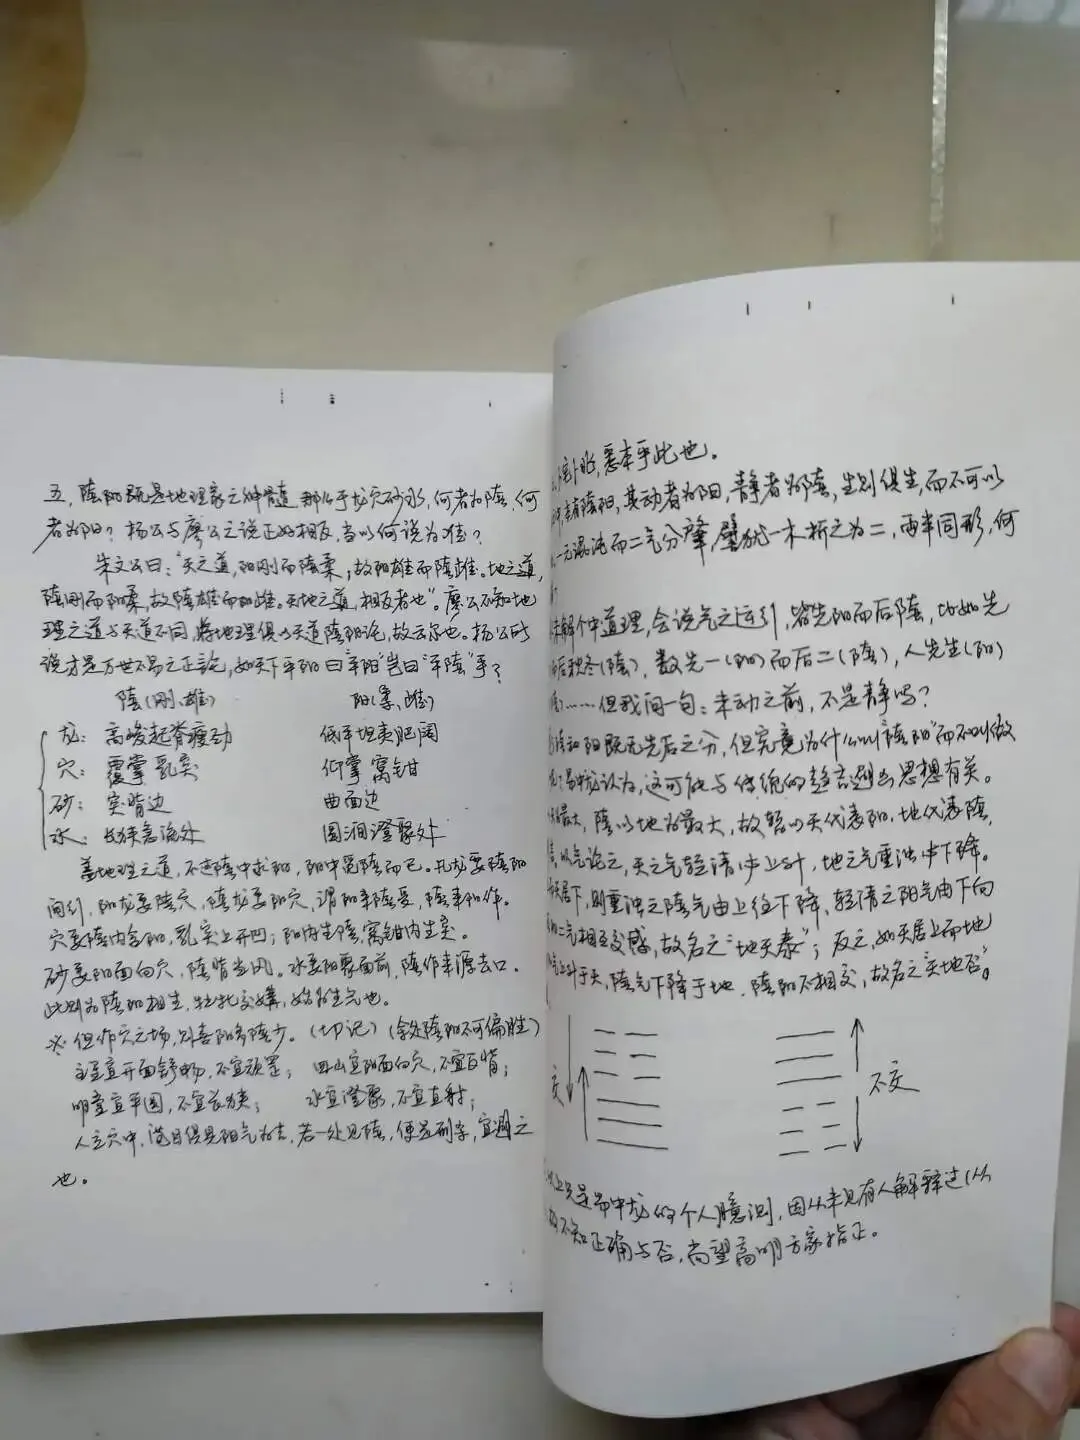 五、陰阳既是地理家之神髓,那么于龙穴砂水,何者为陰、何
者为阳?杨公与廖公之说正好相反,当以何说为准?
朱文公曰:"天之道,阳刚而陰柔,故阳雄而陰雌。地之道,
陰刚而阳柔,故陰雄而阳雌。天地之道,相反者也"。廖公不知地
理之道与天道不同,将地理俱以天道陰阳论,故云尔也。杨公所
说才是万世不易之正论,如天下平阳曰"平阳"岂曰"平陰"乎?
陰(刚、雄) 阳(柔、雌)
龙:高峻起脊瘦劲 低平坦夷肥阔
穴:覆掌乳突 仰掌窝钳
砂:突背边 曲面边
水:长狭急流处 圆润澄聚处
盖地理之道,不过陰中求阳,阳中觅陰而已。凡龙要陰阳
间行,阳龙要陰穴,陰龙要阳穴,谓阳来陰受,陰来阳作。
穴要陰内含阳,乳突上开凹;阳内生陰,窝钳内生突。
砂要阳面向穴,陰背当风。水要阳聚面前,陰作来源去口。
此则为陰阳相生,牝牡交媾,始有生气也。
※但作穴之场,则喜阳多陰少。(切记)(余处陰阳不可偏胜)
主星宜开面舒畅,不宜顽罡; 四山宜阳面向穴,不宜反背;
明堂宜平圆,不宜长狭; 水宜澄聚,不宜直射;
人立穴中,满目俱见阳气为吉,若一处见陰,便是刑杀,宜避之
也。
悉本乎此也。
有陰阳,其动者为阳,静者为陰,生则俱生,而不可以
一元混沌而二气分肇,譬犹一木析之为二,两半同形,何
未解个中道理,会说气之运行,皆先阳而后陰,比如先
后秋冬(陰),数先一(阳)而后二(陰),人先生(阳)
……但我问一句:未动之前,不是静吗?
和阳既无先后之分,但究竟为什么叫"陰阳"而不叫做
易中龙认为,这可能与传统的趋吉避凶思想有关。
最大,陰以地为最大,故皆以天代表阳,地代表陰,
以气论之,天之气轻清冲上升,地之气重浊冲下降。
天居下,则重浊之陰气由上往下降,轻清之阳气由下向
二气相互交感,故名之"地天泰";反之,如天居上而地
气上升于天,陰气下降于地,陰阳不相交,故名之"天地否"。
交 不交
以上只是易中龙的个人臆测,因从未见有人解释过(从
故不知正确与否,尚望高明方家指正。